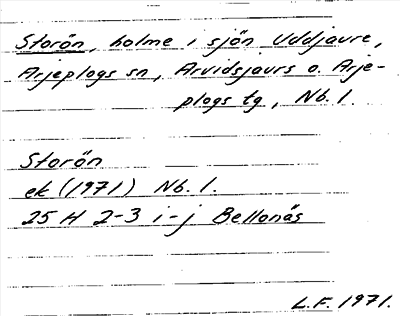 Storön, holme i sjön Uddjaure,
Arjeplogs sn, Arvidsjaurs o. Arje-
plogs tg, Nb. l.
Storön
ek (1971) Nb. l.
25 H 2-3 i-j Bellonäs
L.F. 1971.